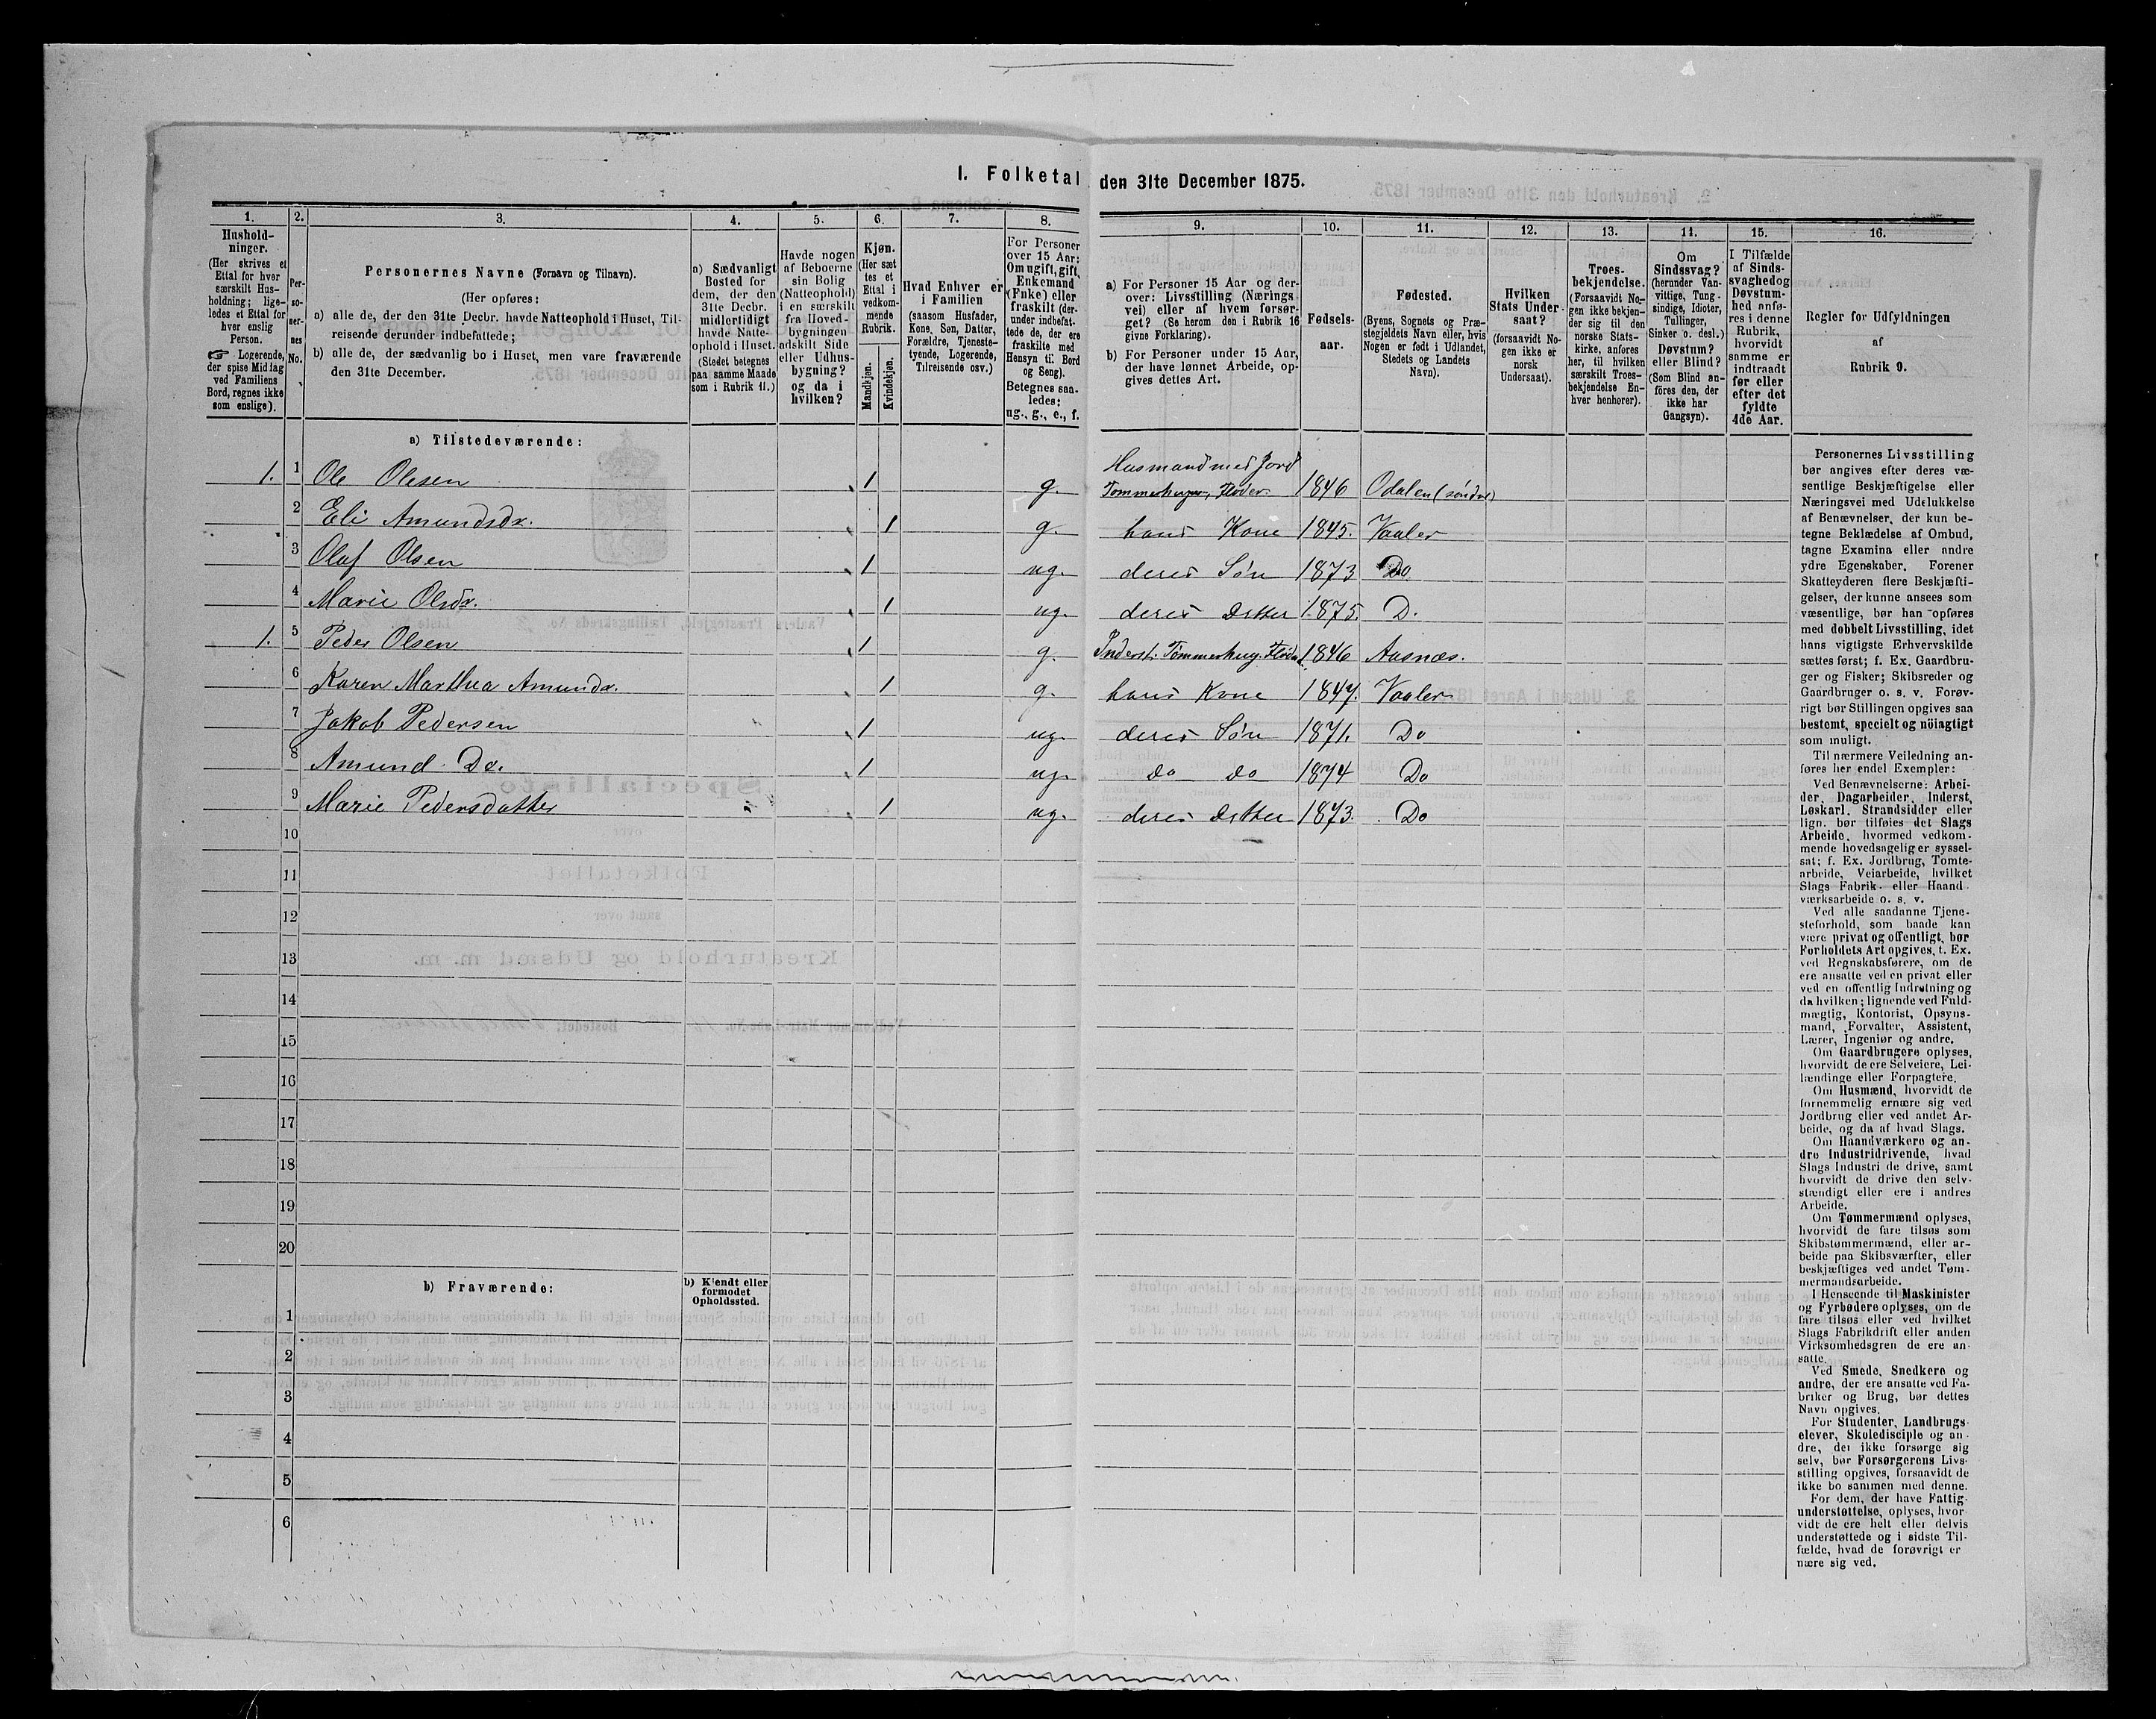 1. Folketal den 31te December 1875.
1.
Husholdninger.
(Her skrives et
Ettal for hver
særskilt Hus-
holdning; lige-
ledes et Ettal for
hver enslig
Person.
☞ Logerende,
der spise Middag
ved Familiens
Bord, regnes ikke
som enslige).
2.
Per-
so-
ner-
nes
No.
3.
Personernes Navne (Fornavn og Tilnavn).
(Her opføres:
a) alle de, der den 31te Decbr. havde Natteophold i Huset, Til-
reisende derunder indbefattede;
b) alle de, der sædvanlig bo i Huset, men vare fraværende
den 31te December.
4.
a) Sædvanligt
Bosted for
dem, der den
31te Decbr.
midlertidigt
havde Natte-
ophold i Huset.
(Stedet betegnes
paa samme Maade
som i Rubrik 11.)
5.
Havde nogen
af Beboerne
sin Bolig
(Natteophold)
i en særskilt
fra Hoved-
bygningen
adskilt Side
eller Udhus-
bygning?
og da i
hvilken?
6.
Kjøn.
(Her sæt
tes et
Ettal i
vedkom-
mende
Rubrik.
Mandkjøn.
Kvindekjøn.
7.
Hvad Enhver er
i Familien
(saasom Husfader,
Kone, Søn, Datter,
Forældre, Tjeneste-
tyende, Logerende,
Tilreisende osv.)
8.
For Personer
over 15 Aar:
Om ugift, gift,
Enkemand
(Enke) eller
fraskilt (der-
under indbefat-
tede de, der ere
fraskilte med
Hensyn til Bord
og Seng).
Betegnes saa-
ledes:
ug., g., e., f.
9.
a) For Personer 15 Aar og der-
over: Livsstilling (Nærings
vei) eller af hvem forsør-
get? (Se herom den i Rubrik 16
givne Forklaring).
b) For Personer under 15 Aar,
der have lønnet Arbeide, op-
gives dettes Art.
10.
Fødsels-
aar.
11.
Fødested.
(Byens, Sognets og Præ-
stegjeldets Navn eller, hvis
Nogen er født i Udlandet,
Stedets og Landets
Navn).
12.
Hvilken
Stats Under-
saat?
(forsaavidt No-
gen ikke er
norsk
Undersaat).
13.
Troes-
bekjendelse.
(Forsaavidt No-
gen ikke bekjen-
der sig til den
norske Stats-
kirke, anføres
her, til hvilken
særskilt Troes-
bekjendelse En-
hver henhører).
14.
Om
Sindssvag?
(herunder Van-
vittige, Tung-
sindige, Idioter,
Tullinger,
Sinker o. desl.)
Døvstum?
eller Blind?
(Som Blind an-
føres den, der
ikke har
Gangsyn).
15.
I Tilfælde
af Sinds-
svaghedog
Døvstum-
hed anfø-
res i denne
Rubrik,
hvorvidt
samme er
indtraadt
før eller
efter det
fyldte
4de Aar.
16.
Regler for Udfyldningen
af
Rubrik 9.
a) Tilstedeværende:
Husmand med Jord
1. 1 Ole Olesen 1 g. Tømmerhuger, Fløder 1846 Odalen (søndre)
2 Eli Amundsdr. 1 g. hans Kone 1845. Vaaler
3 Olaf Olsen 1 ug. deres Søn 1873 Do
4 Marie Olsdr. 1 ug. deres Datter 1875. D.
1. 5 Peder Olsen 1 g. Inderst: Tømmerhug. Fløder 1846 Aasnæs.
6 Karen Marthea Amundsdr. 1 g. hans Kone 1847. Vaaler
7 Jakob Pedersen 1 ug. deres Søn 1871. Do
8 Amund Do. 1 ug. do do 1874 Do
9 Marie Pedersdatter 1 ug. deres Datter 1873. Do
10
11
12
13
14
15
16
17
18
19
20
b) Fraværende:
b) Kjendt eller
formodet
Opholdssted.
1
2
3
4
5
6
Personernes Livsstilling
bør angives efter deres væ-
sentlige Beskjæftigelse eller
Næringsvei med Udelukkelse
af Benævnelser, der kun be-
tegne Beklædelse af Ombud,
tagne Examina eller andre
ydre Egenskaber. Forener
Skatteyderen flere Beskjæfti-
gelser, der kunne ansees som
væsentlige, bør han opføres
med dobbelt Livsstilling, idet
hans vigtigste Erhvervskilde
sættes først; f. Ex. Gaardbru-
ger og Fisker; Skibsreder og
Gaardbruger o. s. v. Forøv-
rigt bør Stillingen opgives saa
bestemt, specielt og nöiagtigt
som muligt.
Til nærmere Veiledning an-
føres her endel Exempler:
Ved Benævnelserne: Arbei-
der, Dagarbeider, Inderst,
Løskarl, Strandsidder eller
lign. bør tilføies det Slags
Arbeide, hvormed vedkom-
mende hovedsagelig er syssel-
sat; f. Ex. Jordbrug, Tomte-
arbeide, Veiarbeide, hvilket
Slags Fabrik- eller Haand-
værksarbeide o. s. v.
Ved alle saadanne Tjene-
steforhold, som baade kan
være privat og offentligt, bør
Forholdets Art opgives, t. Ex.
ved Regnskabsførere, om de
ere ansatte ved en privat eller
ved en offentlig Indretning og
da hvilken; lignende ved Fuld-
mægtig, Kontorist, Opsyns-
mand, Forvalter, Assistent,
Lærer, Ingeniør og andre.
Om Gaardbrugere oplyses,
hvorvidt de ere Selveiere, Lei-
lændinge eller Forpagtere.
Om Husmænd, hvorvidt de
fornemmelig ernære sig ved
Jordbrug eller ved andet Ar-
beide, og da af hvad Slags.
Om Haandværkere og an-
dre Industridrivende, hvad
Slags Industri de drive, samt
hvorvidt de drive den selv-
stændigt eller ere i andres
Arbeide.
Om Tømmermænd oplyses,
hvorvidt de fare tilsøs som
Skibstømmermænd, eller ar-
beide paa Skibsværfter, eller
beskjæftiges ved andet Tøm-
mermandsarbeide.
I Henseende til Maskinister
og Fyrbødere oplyses, om de
fare tilsøs eller ved hvilket
Slags Fabrikdrift eller anden
Virksomhedsgren de ere an-
satte.
Ved Smede, Snedkere og
andre, der ere ansatte ved Fa-
briker og Brug, bør dettes
Navn opgives.
For Studenter, Landbrugs-
elever, Skoledisciple og an-
dre, der ikke forsørge sig
selv, bør Forsørgerens Livs-
stilling opgives, forsaavidt de
ikke bo sammen med denne.
For dem, der have Fattig-
understøttelse, oplyses, hvor-
vidt de ere helt eller delvis
understøttede og i sidste Til-
fælde, hvad de forøvrigt er-
nære sig ved.